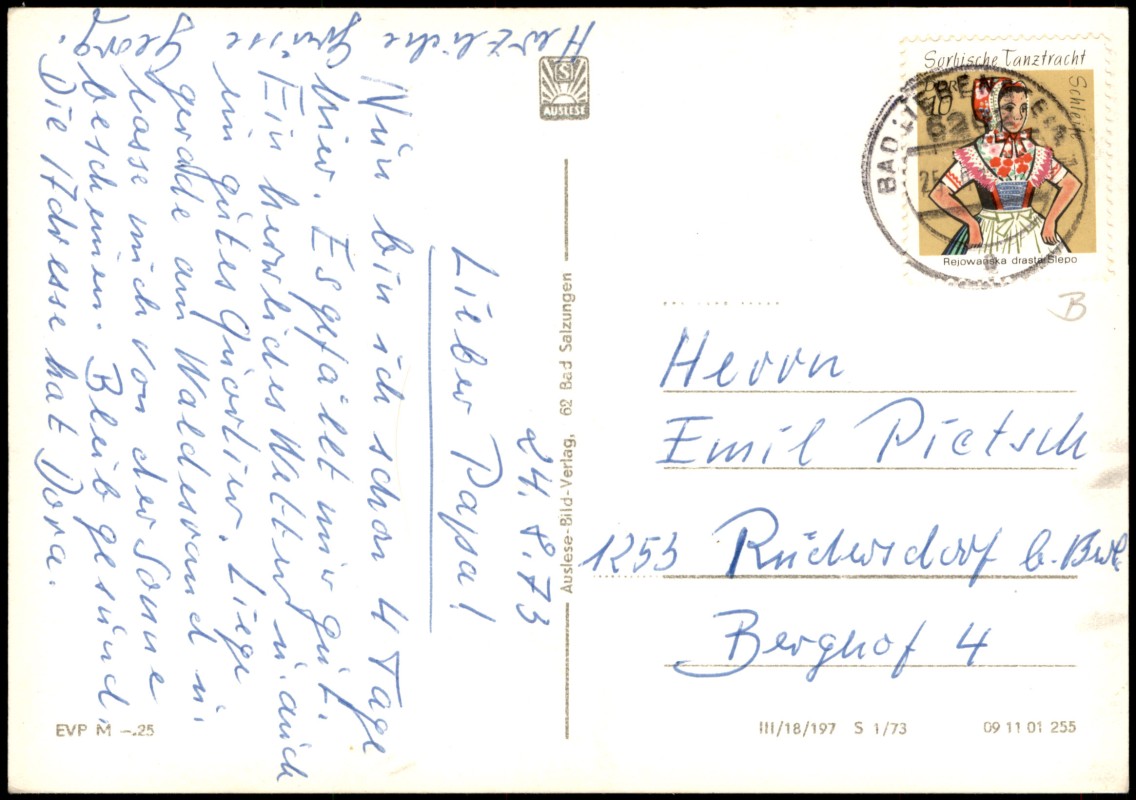 24.8.73
Lieber Papa!
Nun bin ich schon 4 Tage
hier. Es gefällt mir gut.
Ein herrliches Wetter u. auch
ein gutes Quartier. Liege
gerade am Waldesrand u.
lasse mich von der Sonne
bescheinen. Bleib gesund.
Die Adresse hat Dora.
Herzliche Grüsse
Georg.
S
AUSLESE
Auslese-Bild-Verlag, 62 Bad Salzungen
EVP M –.25
Sorbische Tanztracht
Schleife
DDR
10
Rejowańska drasta Slepo
BAD LIEBENSTEIN
B
Herrn
Emil Pietsch
1253 Rüdersdorf b. Bln.
Berghof 4
III/18/197 S 1/73 09 11 01 255